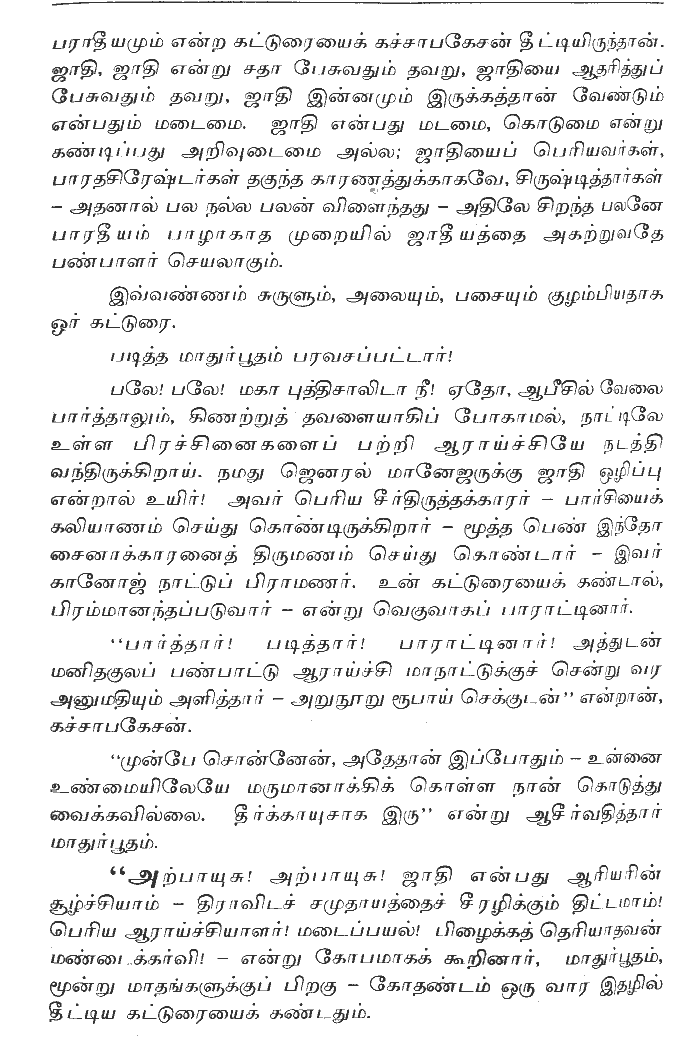 பராதீயமும் என்ற கட்டுரையைக் கச்சாபகேசன் தீட்டியிருந்தான்.
ஜாதி, ஜாதி என்று சதா பேசுவதும் தவறு, ஜாதியை ஆதரித்துப்
பேசுவதும் தவறு, ஜாதி இன்னமும் இருக்கத்தான் வேண்டும்
என்பதும் மடைமை. ஜாதி என்பது மடமை, கொடுமை என்று
கண்டிப்பது அறிவுடைமை அல்ல; ஜாதியைப் பெரியவர்கள்,
பாரதசிரேஷ்டர்கள் தகுந்த காரணத்துக்காகவே, சிருஷ்டித்தார்கள்
– அதனால் பல நல்ல பலன் விளைந்தது – அதிலே சிறந்த பலனே
பாரதீயம் பாழாகாத முறையில் ஜாதீயத்தை அகற்றுவதே
பண்பாளர் செயலாகும்.
இவ்வண்ணம் சுருளும், அலையும், பசையும் குழம்பியதாக
ஓர் கட்டுரை.
படித்த மாதுர்பூதம் பரவசப்பட்டார்!
பலே! பலே! மகா புத்திசாலிடா நீ! ஏதோ, ஆபீசில் வேலை
பார்த்தாலும், கிணற்றுத் தவளையாகிப் போகாமல், நாட்டிலே
உள்ள பிரச்சினைகளைப் பற்றி ஆராய்ச்சியே நடத்தி
வந்திருக்கிறாய். நமது ஜெனரல் மானேஜருக்கு ஜாதி ஒழிப்பு
என்றால் உயிர்! அவர் பெரிய சீர்திருத்தக்காரர் – பார்சியைக்
கலியாணம் செய்து கொண்டிருக்கிறார் – மூத்த பெண் இந்தோ
சைனாக்காரனைத் திருமணம் செய்து கொண்டார் – இவர்
கானோஜ் நாட்டுப் பிராமணர். உன் கட்டுரையைக் கண்டால்,
பிரம்மானந்தப்படுவார் – என்று வெகுவாகப் பாராட்டினார்.
‘‘பார்த்தார்! படித்தார்! பாராட்டினார்! அத்துடன்
மனிதகுலப் பண்பாட்டு ஆராய்ச்சி மாநாட்டுக்குச் சென்று வர
அனுமதியும் அளித்தார் – அறுநூறு ரூபாய் செக்குடன்’’ என்றான்,
கச்சாபகேசன்.
‘‘முன்பே சொன்னேன், அதேதான் இப்போதும் – உன்னை
உண்மையிலேயே மருமானாக்கிக் கொள்ள நான் கொடுத்து
வைக்கவில்லை. தீர்க்காயுசாக இரு’’ என்று ஆசீர்வதித்தார்
மாதுர்பூதம்.
‘‘அற்பாயுசு! அற்பாயுசு! ஜாதி என்பது ஆரியரின்
சூழ்ச்சியாம் – திராவிடச் சமுதாயத்தைச் சீரழிக்கும் திட்டமாம்!
பெரிய ஆராய்ச்சியாளர்! மடைப்பயல்! பிழைக்கத் தெரியாதவன்
மண்டைக்கர்வி! – என்று கோபமாகக் கூறினார், மாதுர்பூதம்,
மூன்று மாதங்களுக்குப் பிறகு – கோதண்டம் ஒரு வார இதழில்
தீட்டிய கட்டுரையைக் கண்டதும்.